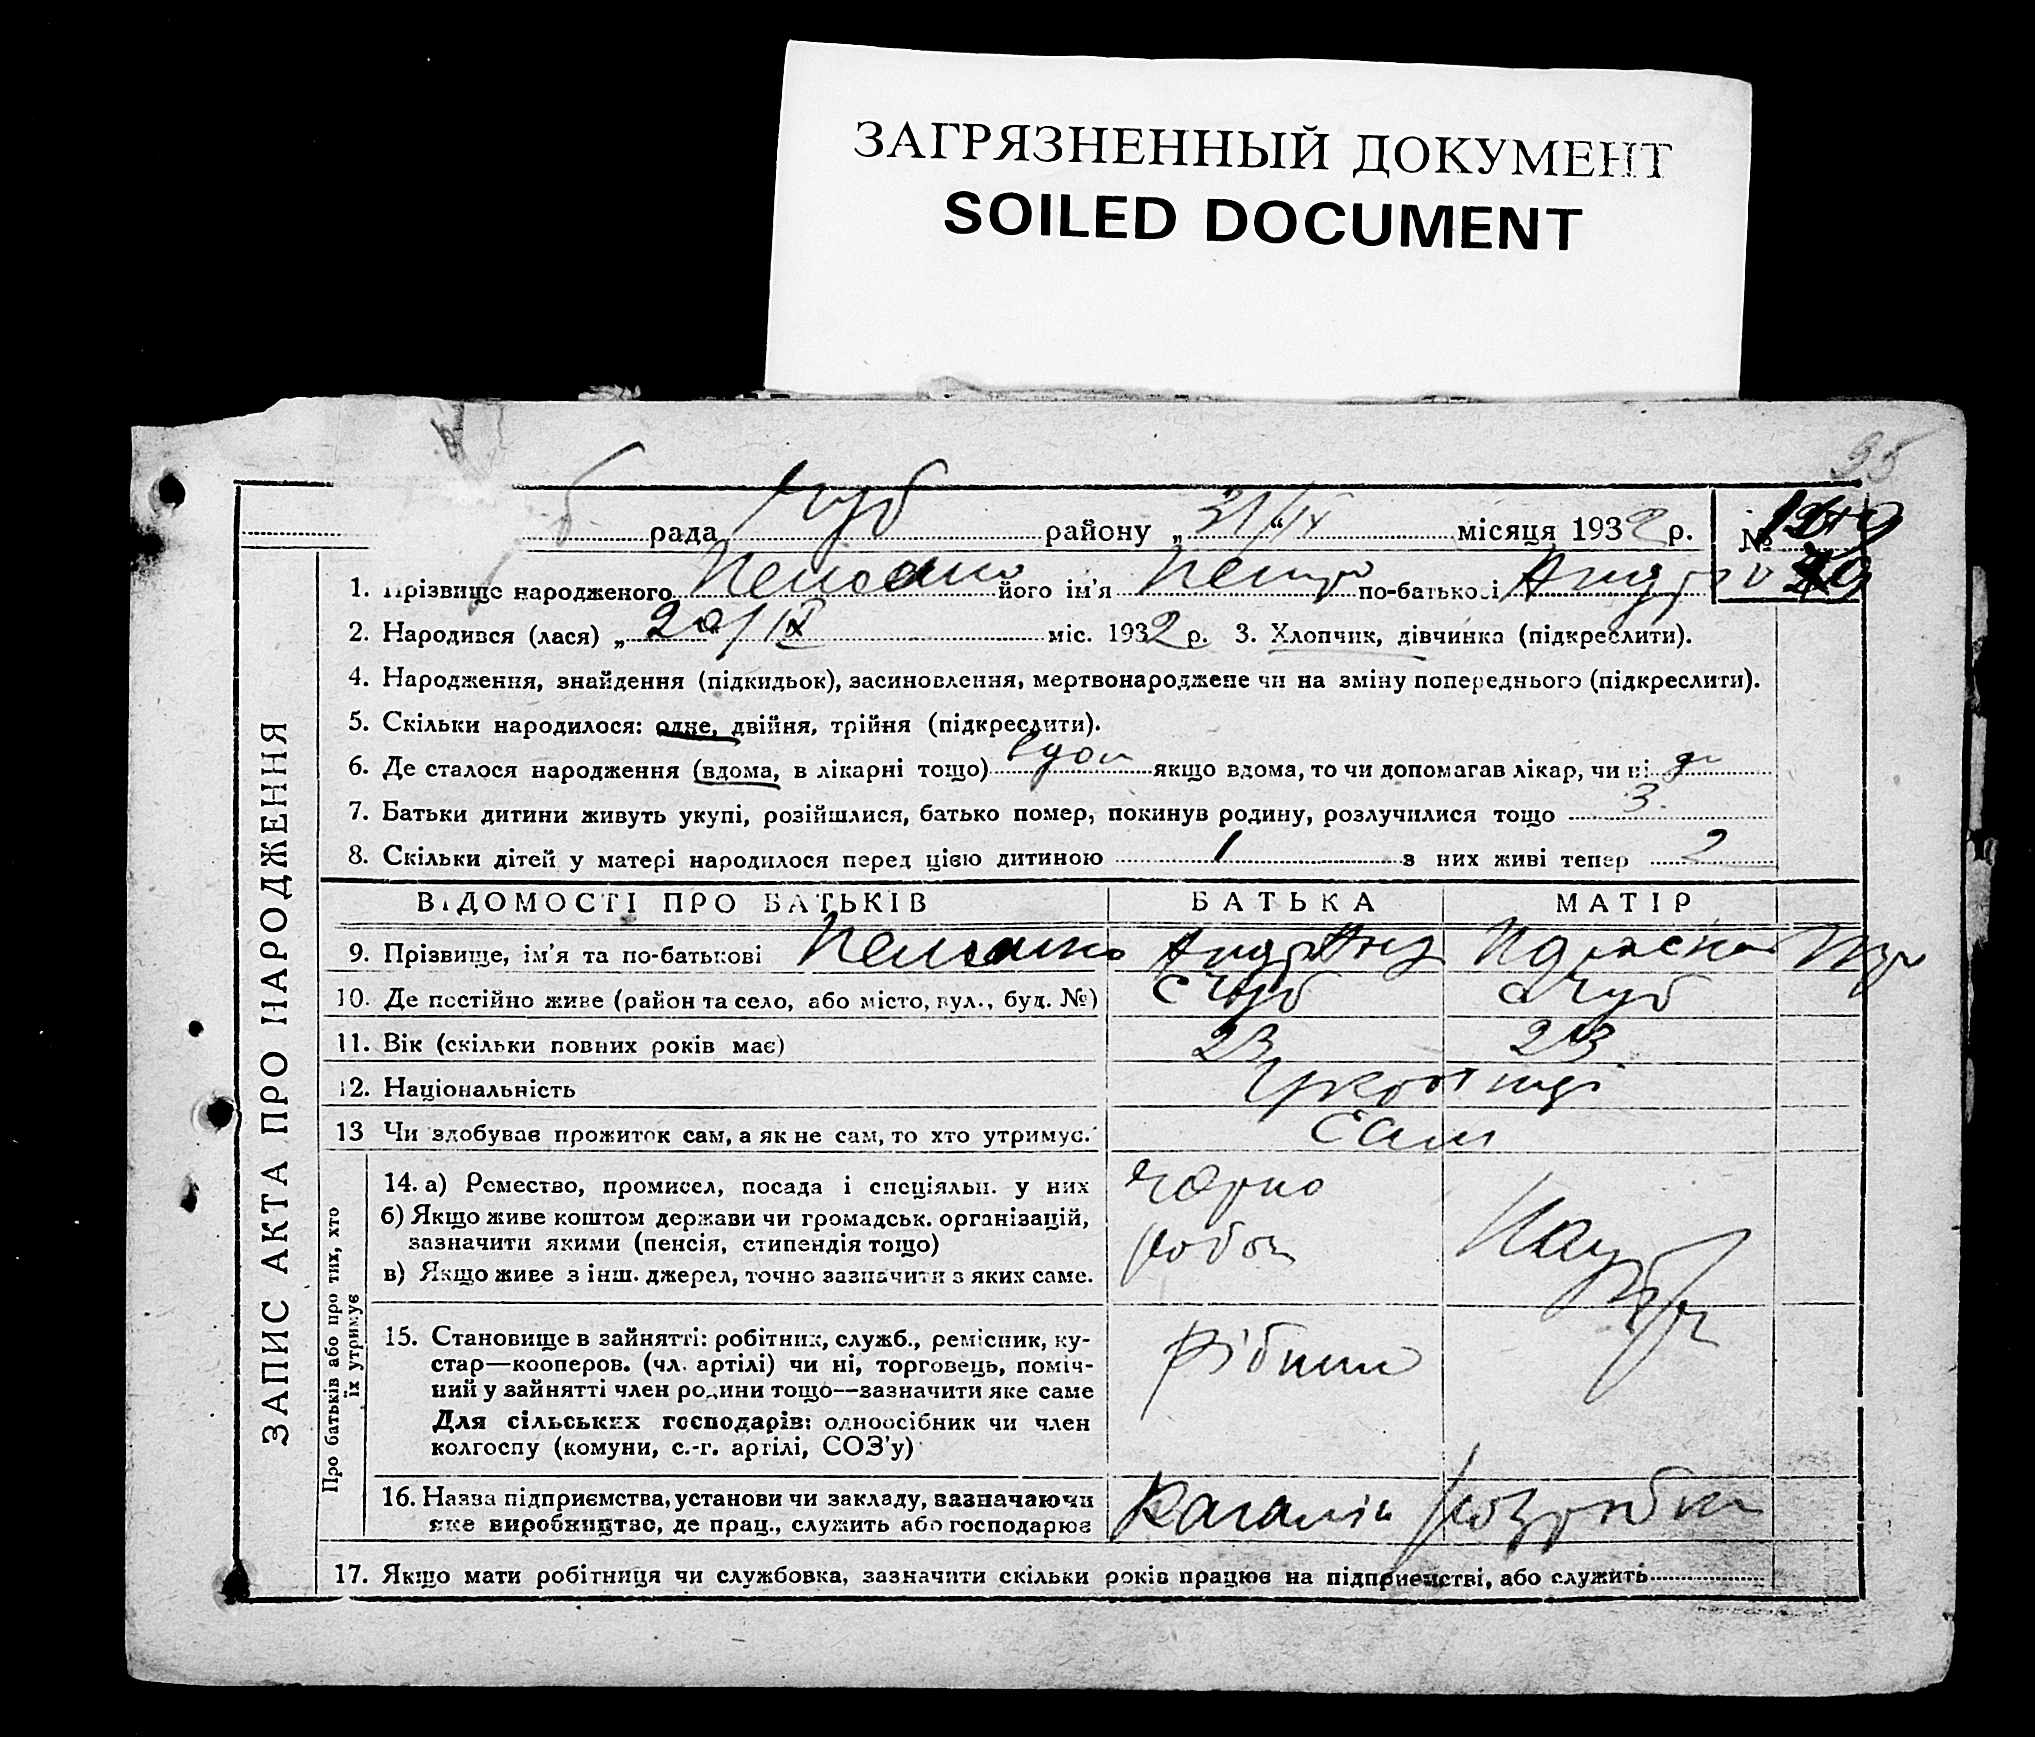 ЗАГРЯЗНЕННЫЙ ДОКУМЕНТ
SOILED DOCUMENT
95
рада Чуб району „31/IX“ місяця 1932 р. №
1. Прізвище народженого його ім'я Петро по-батькові Андр
2. Народився (лася) „20/IX міс. 1932 р. 3. Хлопчик, дівчинка (підкреслити).
4. Народження, знайдення (підкидьок), засиновлення, мертвонароджене чи на зміну попереднього (підкреслити).
5. Скільки народилося: одне, двійня, трійня (підкреслити).
6. Де сталося народження (вдома, в лікарні тощо) вдом якщо вдома, то чи допомагав лікар, чи ні
7. Батьки дитини живуть укупі, розійшлися, батько помер, покинув родину, розлучилися тощо З.
8. Скільки дітей у матері народилося перед цією дитиною 1 з них живі тепер 2
ЗАПИС АКТА ПРО НАРОДЖЕННЯ
ВІДОМОСТІ ПРО БАТЬКІВ БАТЬКА МАТІР
9. Прізвище, ім'я та по-батькові Андр Анд
10. Де постійно живе (район та село, або місто, вул., буд. №) с Чуб с Чуб
11. Вік (скільки повних років має) 23 23
12. Національність
13 Чи здобував прожиток сам, а як не сам, то хто утримує. Сам
Про батьків або про тих, хто
їх утримує
14. а) Ремество, промисел, посада і спеціяльн. у них чорно
б) Якщо живе коштом держави чи громадськ. організацій,
зазначити якими (пенсія, стипендія тощо) робоч
в) Якщо живе з інш. джерел, точно зазначити з яких саме.
15. Становище в зайнятті: робітник, служб., ремісник, ку-
стар—кооперов. (чл. артілі) чи ні, торговець, поміч-
ний у зайнятті член родини тощо—зазначити яке саме
Для сільських господарів: одноосібник чи член
колгоспу (комуни, с.-г. артілі, СОЗ'у)
16. Назва підприємства, установи чи закладу, зазначаючи
яке виробництво, де прац., служить або господарює
17. Якщо мати робітниця чи службовка, зазначити скільки років працює на підприємстві, або служить